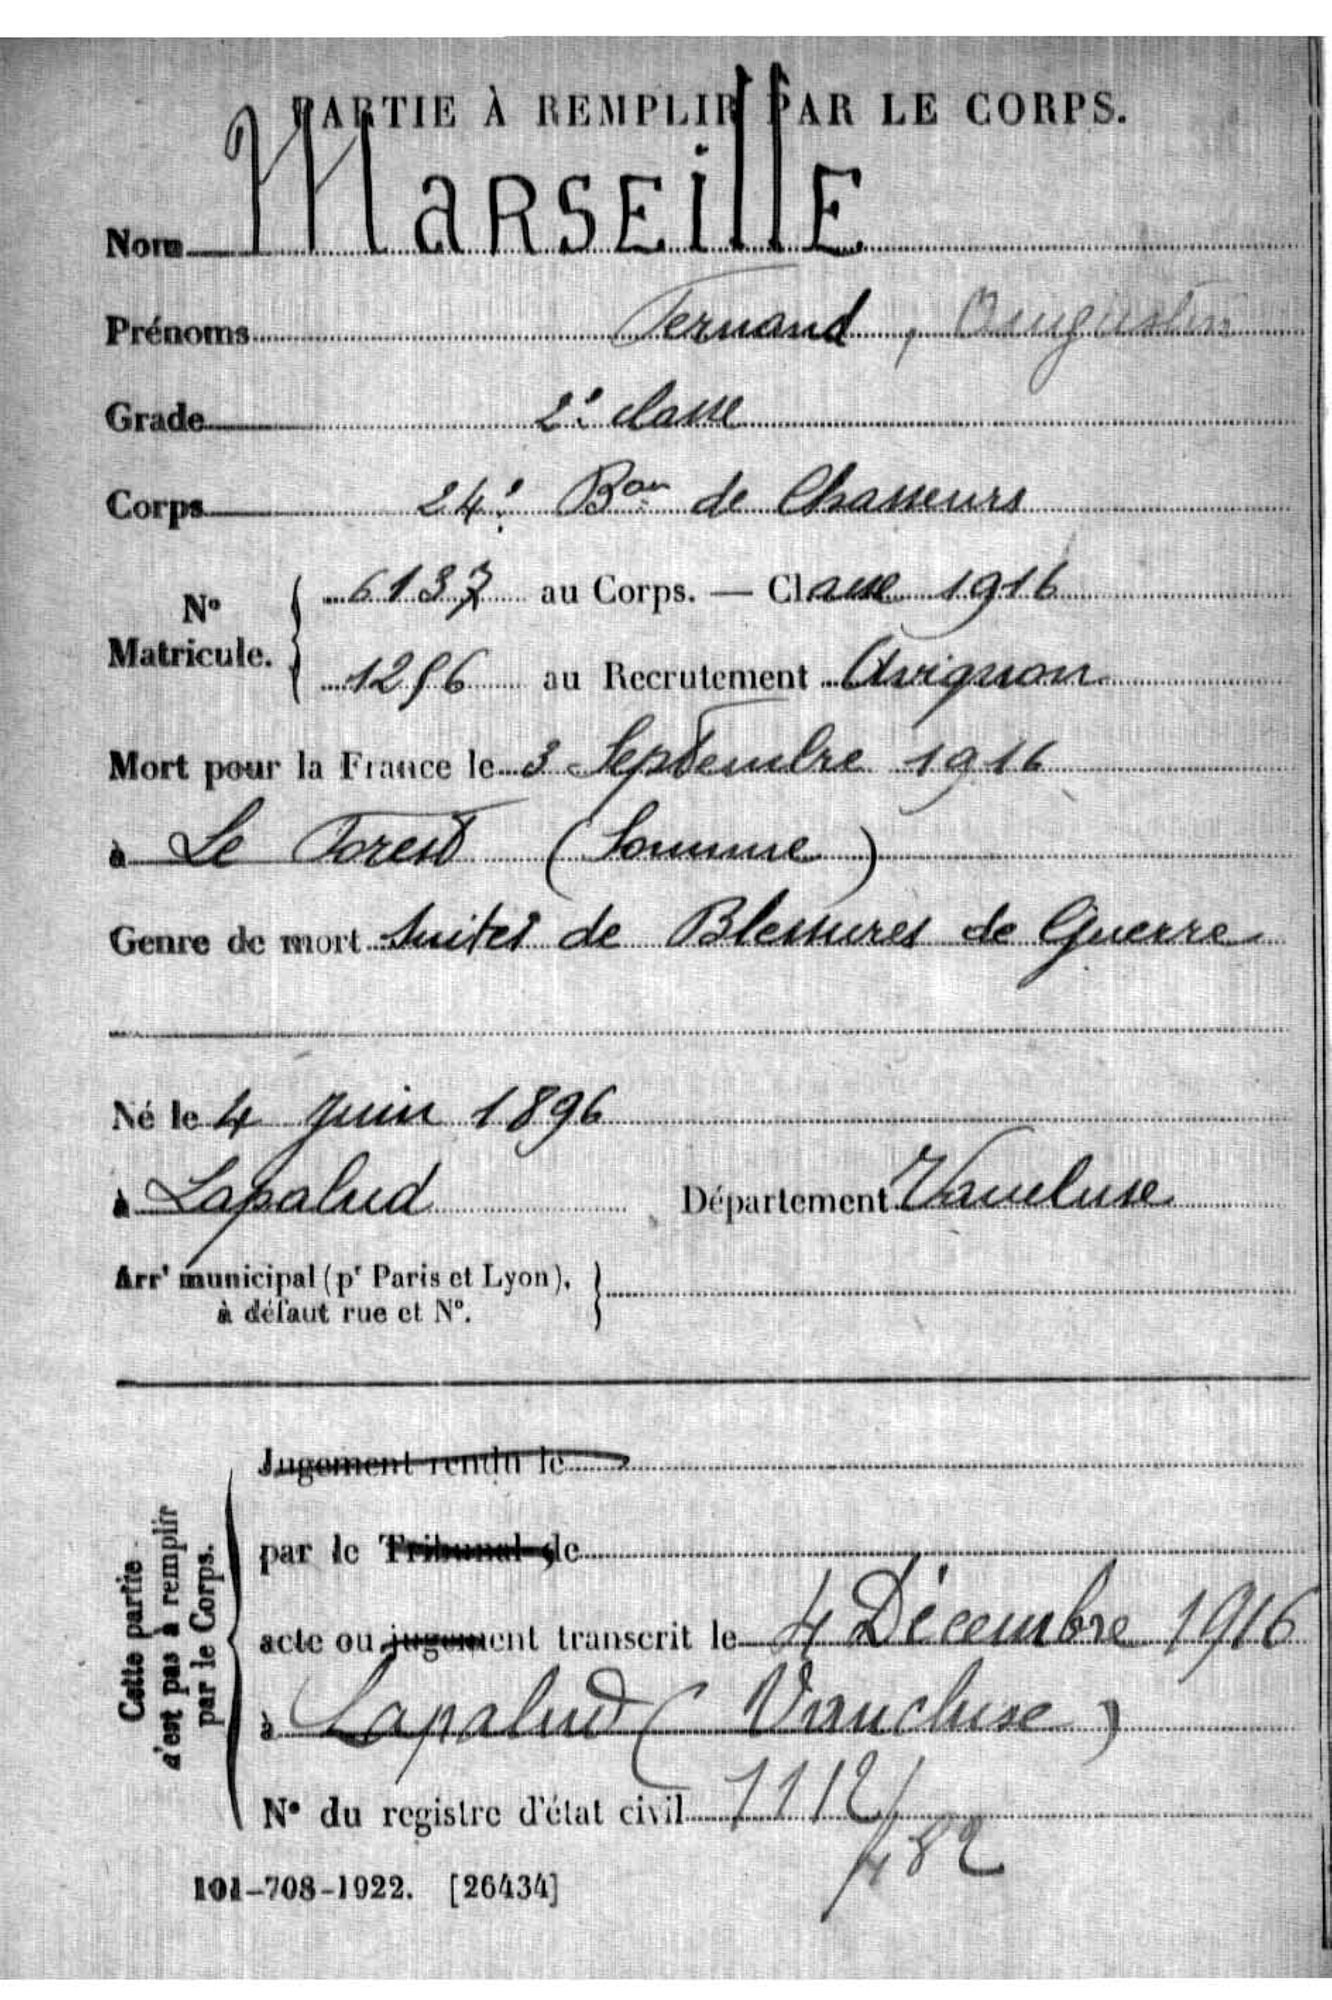 PARTIE À REMPLIR PAR LE CORPS.
Nom MARSEillE
Prénoms Fernand, Augustin
Grade 2e classe
Corps 24e Bon de Chasseurs
N° Matricule. 6137 au Corps. — Classe 1916
1296 au Recrutement Avignon
Mort pour la France le 3 Septembre 1916
à Le Forest (Somme)
Genre de mort Suites de Blessures de Guerre
Né le 4 Juin 1896
à Lapalud Département Vaucluse
Arrt municipal (pr Paris et Lyon),
à défaut rue et N°.
Cette partie
n'est pas à remplir
par le Corps.
Jugement rendu le
par le Tribunal de
acte ou jugement transcrit le 4 Décembre 1916
à Lapalud (Vaucluse)
N° du registre d'état civil 1112/
482
101-708-1922. [26434]